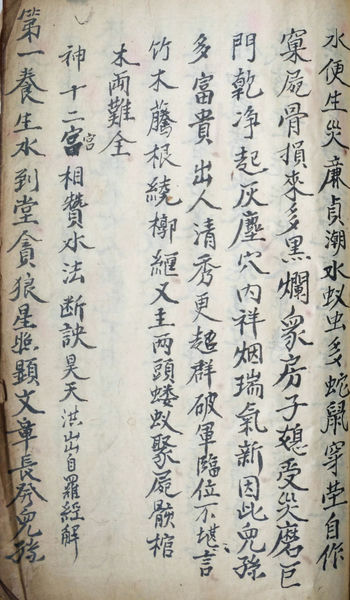 水便生災廉貞潮水蚁虫多蛇鼠穿茔自作
窠屍骨損來多黑爛眾房子媳受災磨巨
門乾净起灰塵穴内祥烟瑞氣新因此兒孫
多富貴出人清秀更超群破軍臨位不堪言
竹木藤根繞槨纏又主两頭蟻蚁聚屍骸棺
木两難全
神十二宮宮相賛水法断訣昊天洪出自羅經解
第一養生水到堂貪狼星照顯文章長發兒孫